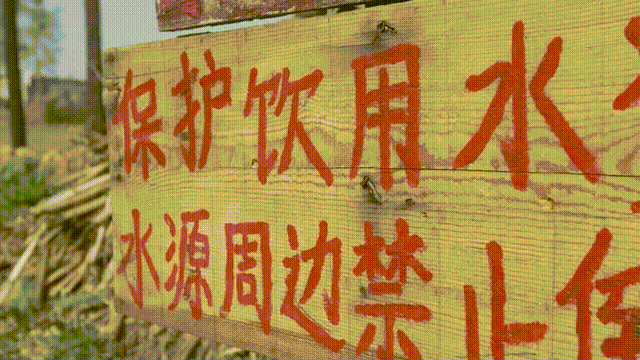 保护饮用水
水源周边禁止